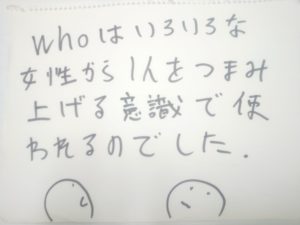 whoはいろいろな
女性から1人をつまみ
上げる意識で使
われるのでした.